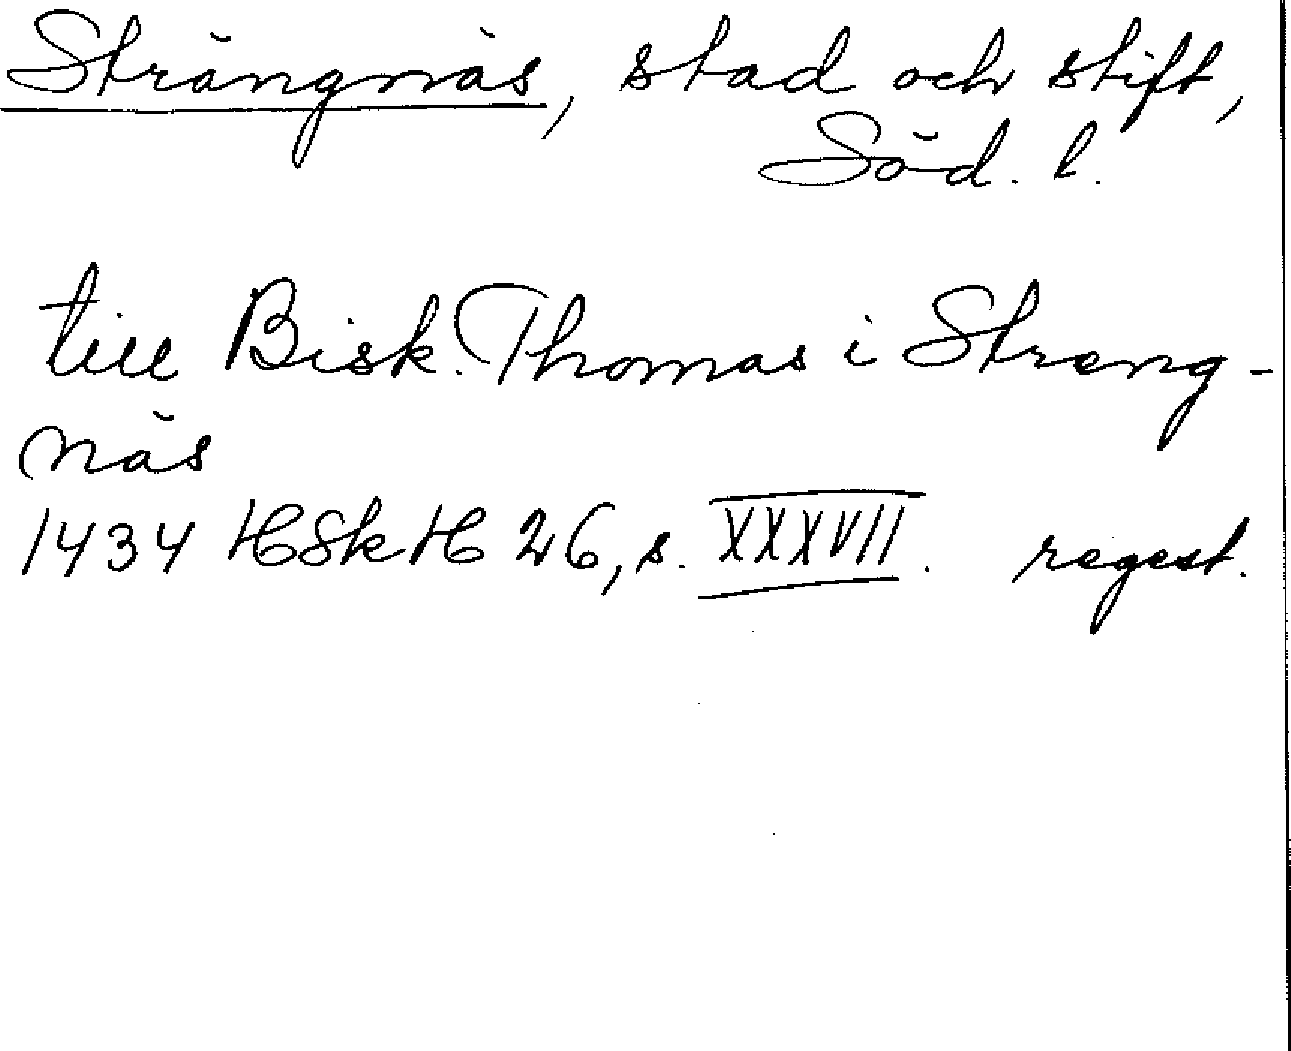 Strängnäs, stad och stift,
Söd. l.
till Bisk. Thomas i Streng-
näs
1434 HSkH 26, s. XXXVII. regest.